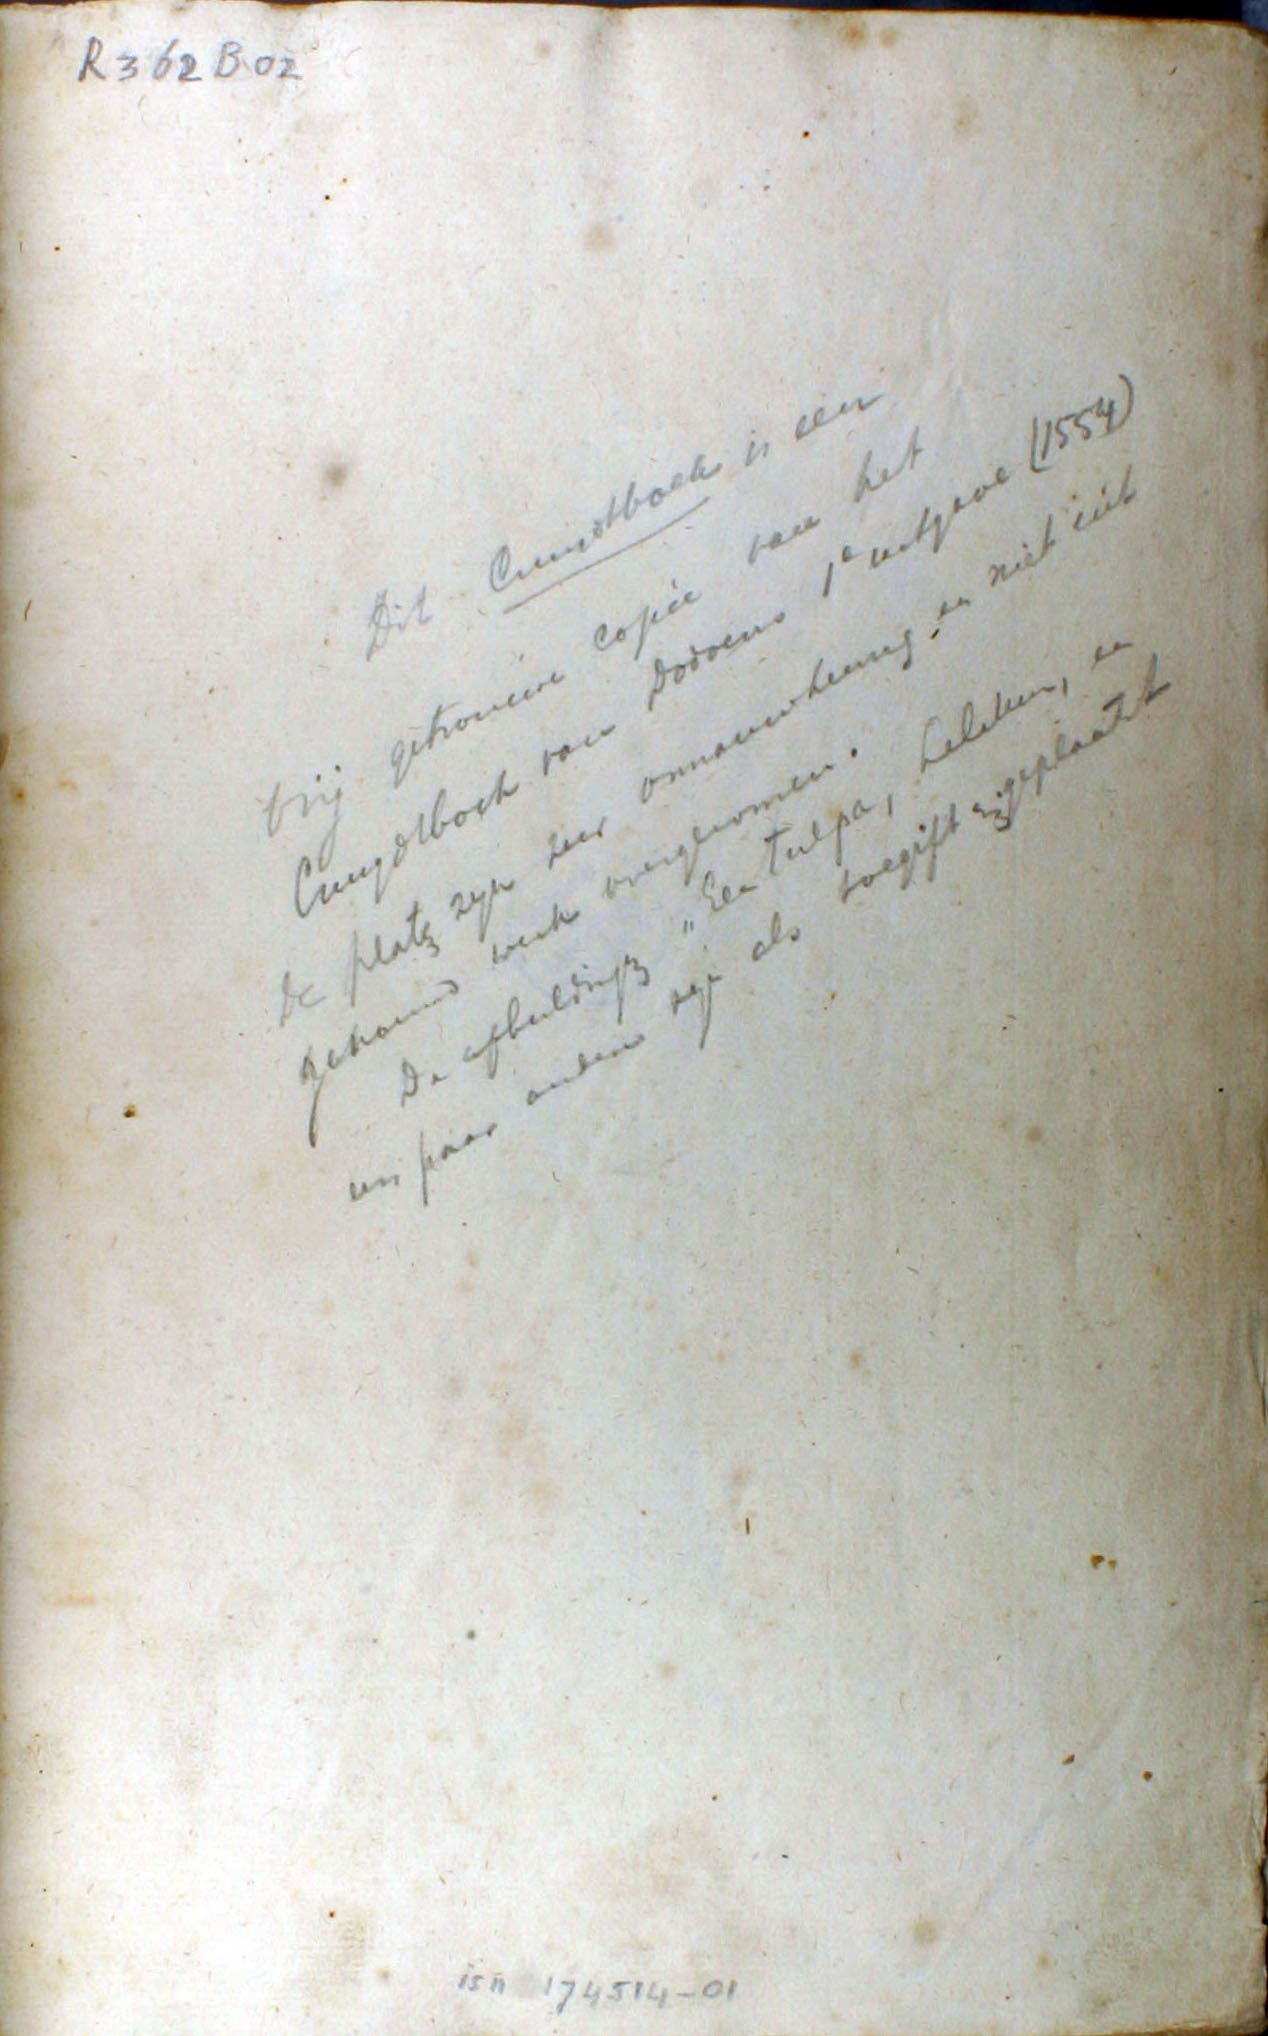 R362B02
Dit Cruydtboek is een
vrij getrouwe copie van het
Cruydtboek van Dodoens 1e uitgave (1554)
De plat zijn zeer onnauwkeurig en niet uit
genoemd werk overgenomen.
De afbeelding "Een Tulpa, en
een paar andere zijn als toegift bijgeplaatst
isn 174514-01